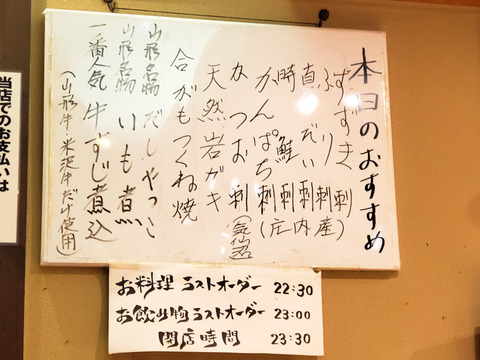 本日のおすすめ
すずき刺
ぶり刺
真だい刺
時鮭刺
かんぱち刺
(庄内産)
かつお刺(気仙沼)
天然岩ガキ
合がもつくね焼
山形名物 だしやっこ
山形名物 いも煮
一番人気 牛すじ煮込
(山形牛・米沢牛だけ使用)
お料理 ラストオーダー 22:30
お飲み物 ラストオーダー 23:00
閉店時間 23:30
当店でのお支払いは